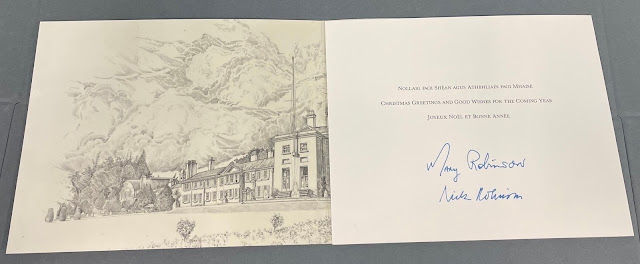 Nollaig faoi Shéan agus Athbhliain faoi Mhaise
Christmas Greetings and Good Wishes for the Coming Year
Joyeux Noël et Bonne Année
Mary Robinson
Nick Robinson